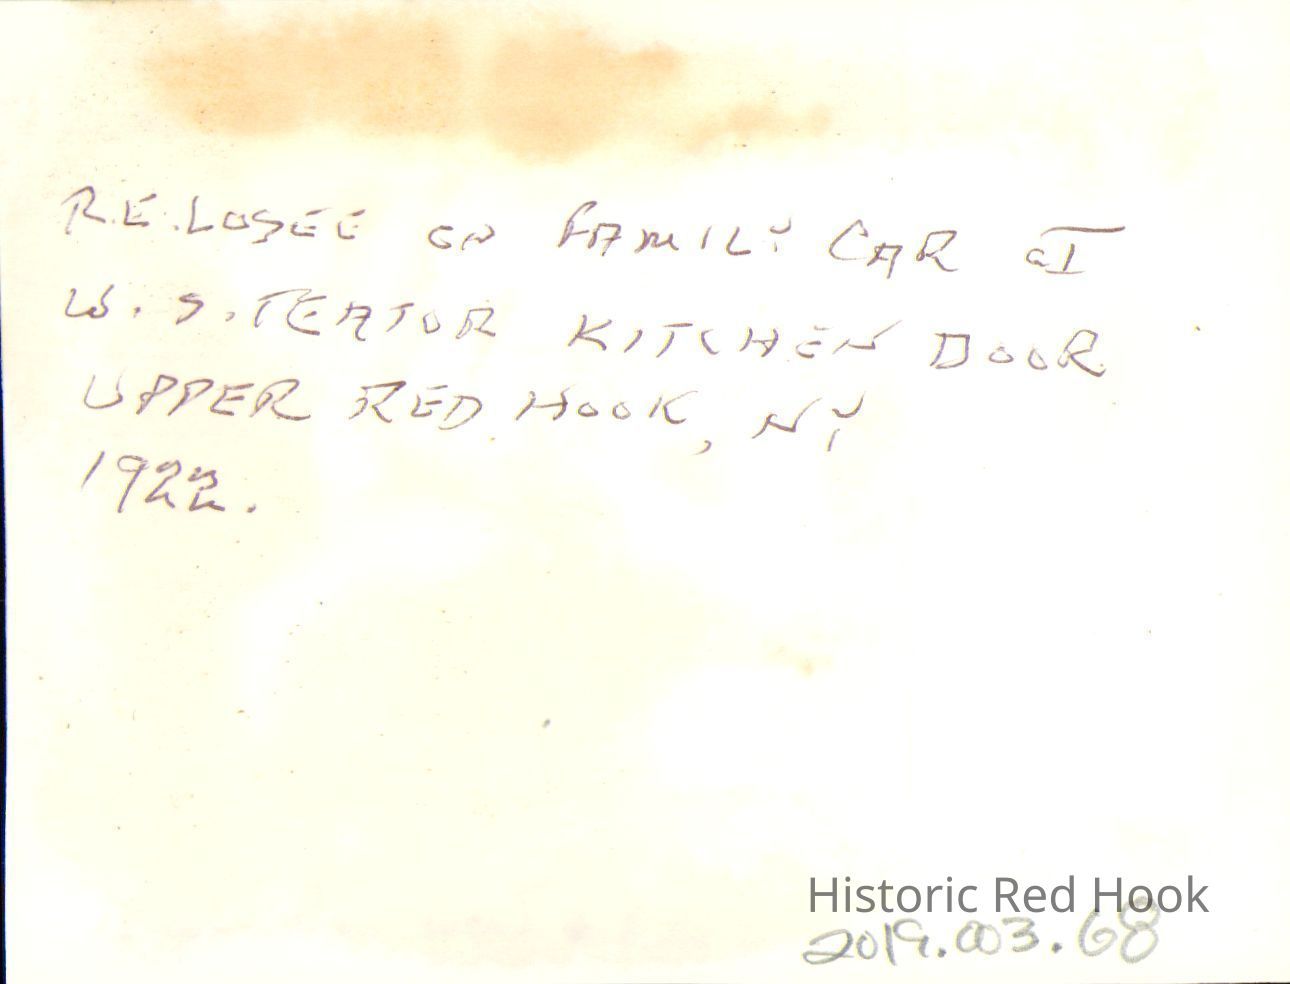 R.E. LOSEE ON FAMILY CAR AT
W. S. TEATOR KITCHEN DOOR
UPPER RED HOOK, NY
1922.
Historic Red Hook
2019.003.68